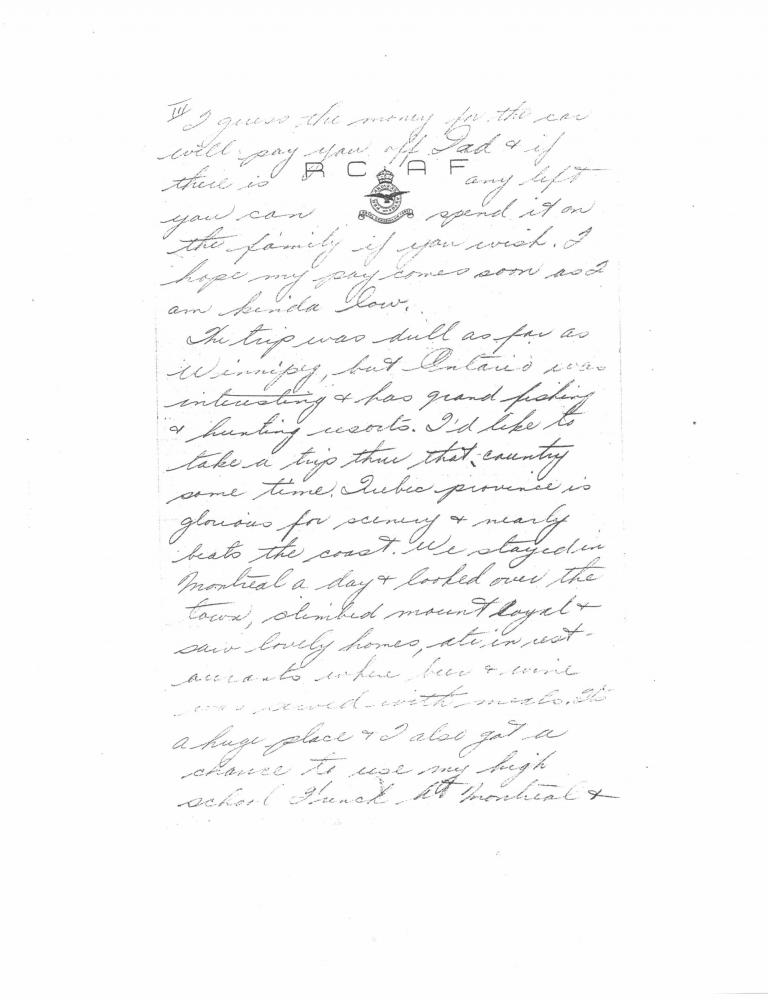 III I guess the money for the car
will pay you off Dad & if
R C A F
there is any left
you can spend it on
the family if you wish. I
hope my pay comes soon as I
am kinda low.
The trip was dull as far as
Winnipeg, but Ontario was
interesting & has grand fishing
& hunting resorts. I'd like to
take a trip thru that country
some time. Quebec province is
glorious for scenery & nearly
beats the coast. We stayed in
Montreal a day & looked over the
town, climbed mount Royal &
saw lovely homes, ate in rest-
aurants where beer & wine
was served with meals. It's
a huge place & I also got a
chance to use my high
school French at Montreal &